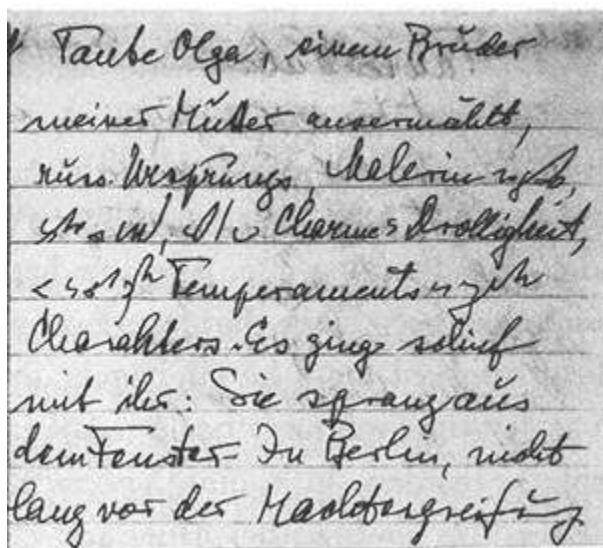 Tante Olga, einem Bruder
meiner Mutter anvermählt,
russ. Ursprungs, Malerin
Charme Drolligkeit,
Temperaments
Charakters. Es ging schief
mit ihr: Sie sprang aus
dem Fenster - In Berlin, nicht
lang vor der Machtergreifung